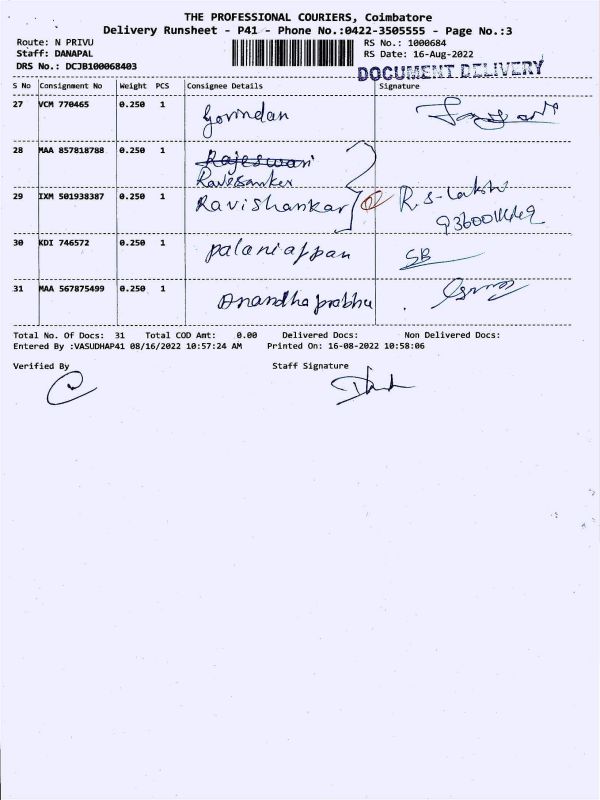 THE PROFESSIONAL COURIERS, Coimbatore
Delivery Runsheet - P41 - Phone No.:0422-3505555 - Page No.:3
Route: N PRIVU RS No.: 1000684
Staff: DANAPAL RS Date: 16-Aug-2022
DRS No.: DCJB100068403 DOCUMENT DELIVERY
S No Consignment No Weight PCS Consignee Details Signature
27 VCM 770465 0.250 1 Govindan
28 MAA 857818788 0.250 1 Rajeswari
Ravisanker
29 IXM 501938387 0.250 1 Ravishankar R.S-Lakshi
30 KDI 746572 0.250 1 palaniappan SB
31 MAA 567875499 0.250 1 Anandhaprabhu
Total No. Of Docs: 31 Total COD Amt: 0.00 Delivered Docs: Non Delivered Docs:
Entered By :VASUDHAP41 08/16/2022 10:57:24 AM Printed On: 16-08-2022 10:58:06
Verified By Staff Signature